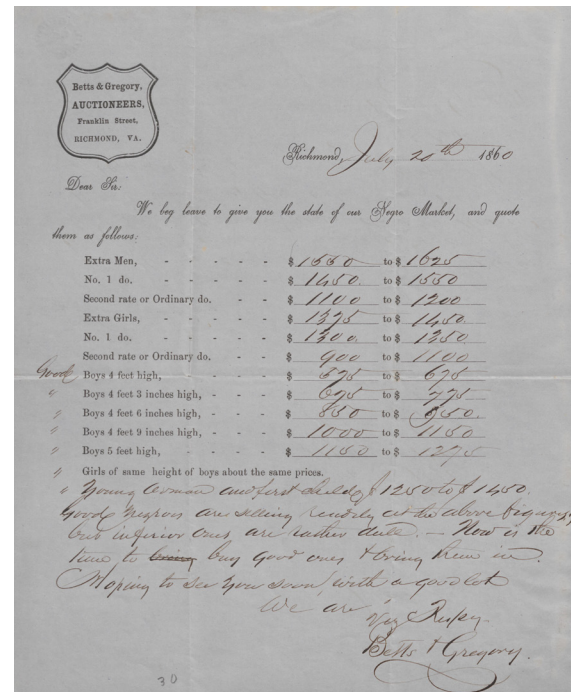 Betts & Gregory,
AUCTIONEERS,
Franklin Street,
RICHMOND, VA.
Richmond, July 20th 1860
Dear Sir:
We beg leave to give you the state of our Negro Market, and quote
them as follows:
Extra Men, - - - - - $ 1550 to $ 1625
No. 1 do. - - - - - $ 1450. to $ 1550
Second rate or Ordinary do. - - $ 1100 to $ 1200
Extra Girls, - - - - - $ 1375 to $ 1450.
No. 1 do. - - - - - $ 1300. to $ 1350
Second rate or Ordinary do. - - $ 900 to $ 1100
Good Boys 4 feet high, - - - - $ 575 to $ 675
" Boys 4 feet 3 inches high, - - - $ 675 to $ 775
" Boys 4 feet 6 inches high, - - - $ 850 to $ 950.
" Boys 4 feet 9 inches high, - - - $ 1000 to $ 1150
" Boys 5 feet high, - - - - $ 1150 to $ 1275
" Girls of same height of boys about the same prices.
" Young woman and first child $ 1250 to $ 1450
Good negroes are selling readily at the above figures,
but inferior ones are rather dull. — Now is the
time to bring buy good ones & bring them in.
Hoping to see you soon with a good lot
We are
Betts & Gregory.
30